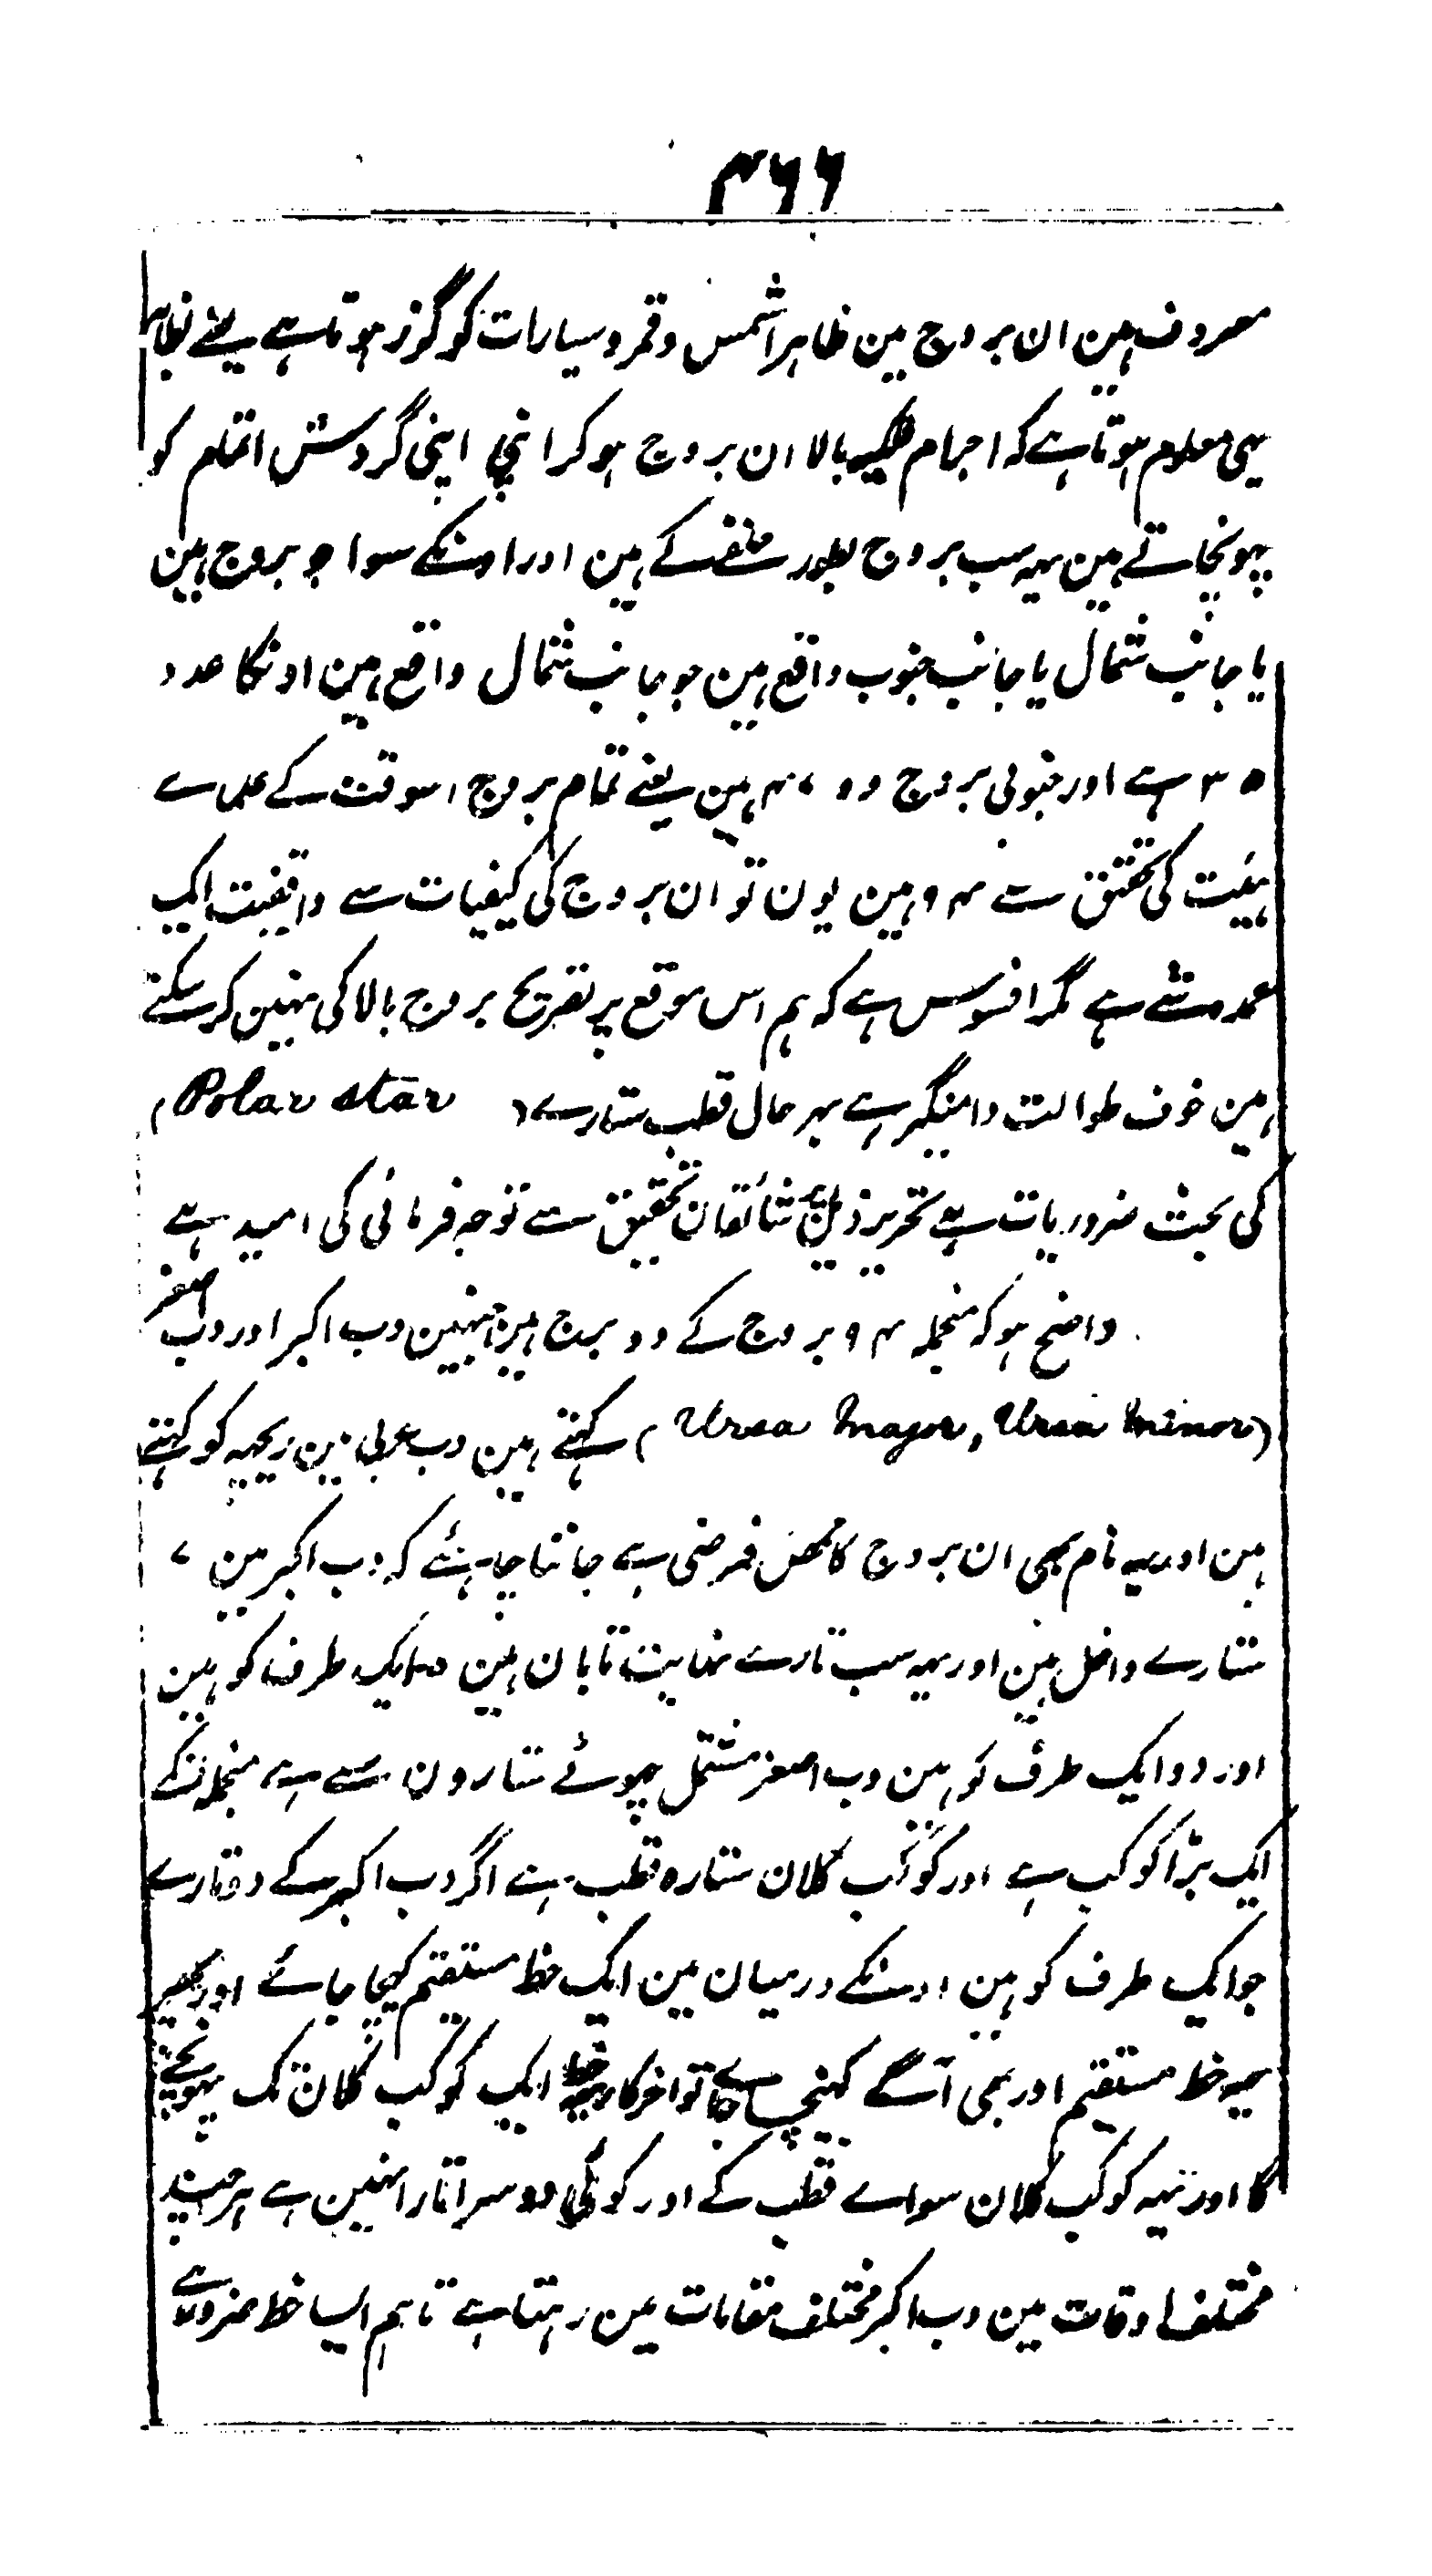 ۴۶۶
معروف ہین ان بروج مین ظاہرا شمس و قمر و سیارات کو گزر ہوتا ہے یعنے بظاہر
یہی معلوم ہوتا ہے کہ اجرام فلکیہ بالا ان بروج ہو کر اپنی اپنی گردش اتمام کو
پہونچاتے ہین یہہ سب بروج بطور منطقے کے ہین اور اونکے سوا جو بروج ہین
یا جانب شمال یا جانب جنوب واقع ہین جو جانب شمال واقع ہین اونکا عدد
۳۵ ہے اور جنوبی بروج وہ ۴۷ ہین یعنے تمام بروج اسوقت کے علماے
ہیئت کی تحقیق سے ۹۴ ہین یون تو ان بروج کی کیفیات سے واقفیت ایک
عمدہ شے ہے مگر افسوس ہے کہ ہم اس موقع پر تصریح بروج بالا کی نہین کر سکتے
ہمین خوف طوالت دامنگیر ہے بہر حال قطب ستارے (Polar star)
کی بحث ضروریات سے ہے تحریر ذیل پر شائقان تحقیق سے توجہ فرمائی کی امید ہے
واضح ہو کہ منجملہ ۹۴ بروج کے دو برج ہین جنہین دب اکبر اور دب اصغر
(Ursa Major, Ursa Minor) کہتے ہین دب عربی مین ریچہہ کو کہتے
ہین اور یہہ نام بھی ان بروج کا محض فرضی ہے جاننا چاہئے کہ دب اکبر مین ۷
ستارے داخل ہین اور یہہ سب تارے نہایت تابان ہین ۵ ایک طرف کو ہین
اور دو ایک طرف کو ہین دب اصغر مشتمل چھوٹے ستارون سے ہے منجملہ انکے
ایک بڑا کوکب ہے اور کوکب کلان ستارہ قطب ہے اگر دب اکبر کے دو تارے
جو ایک طرف کو ہین اونکے درمیان مین ایک خط مستقیم کھینچا جائے اور پھر
یہہ خط مستقیم اور بھی آگے کھینچا جاے تو آخر کار یہہ خط ایک کوکب کلان تک پہونچے
گا اور یہہ کوکب کلان سواے قطب کے اور کوئی دوسرا تارا نہین ہے ہر چند
مختلف اوقات مین دب اکبر مختلف مقامات مین رہتا ہے تاہم ایسا خط ہمزولاے